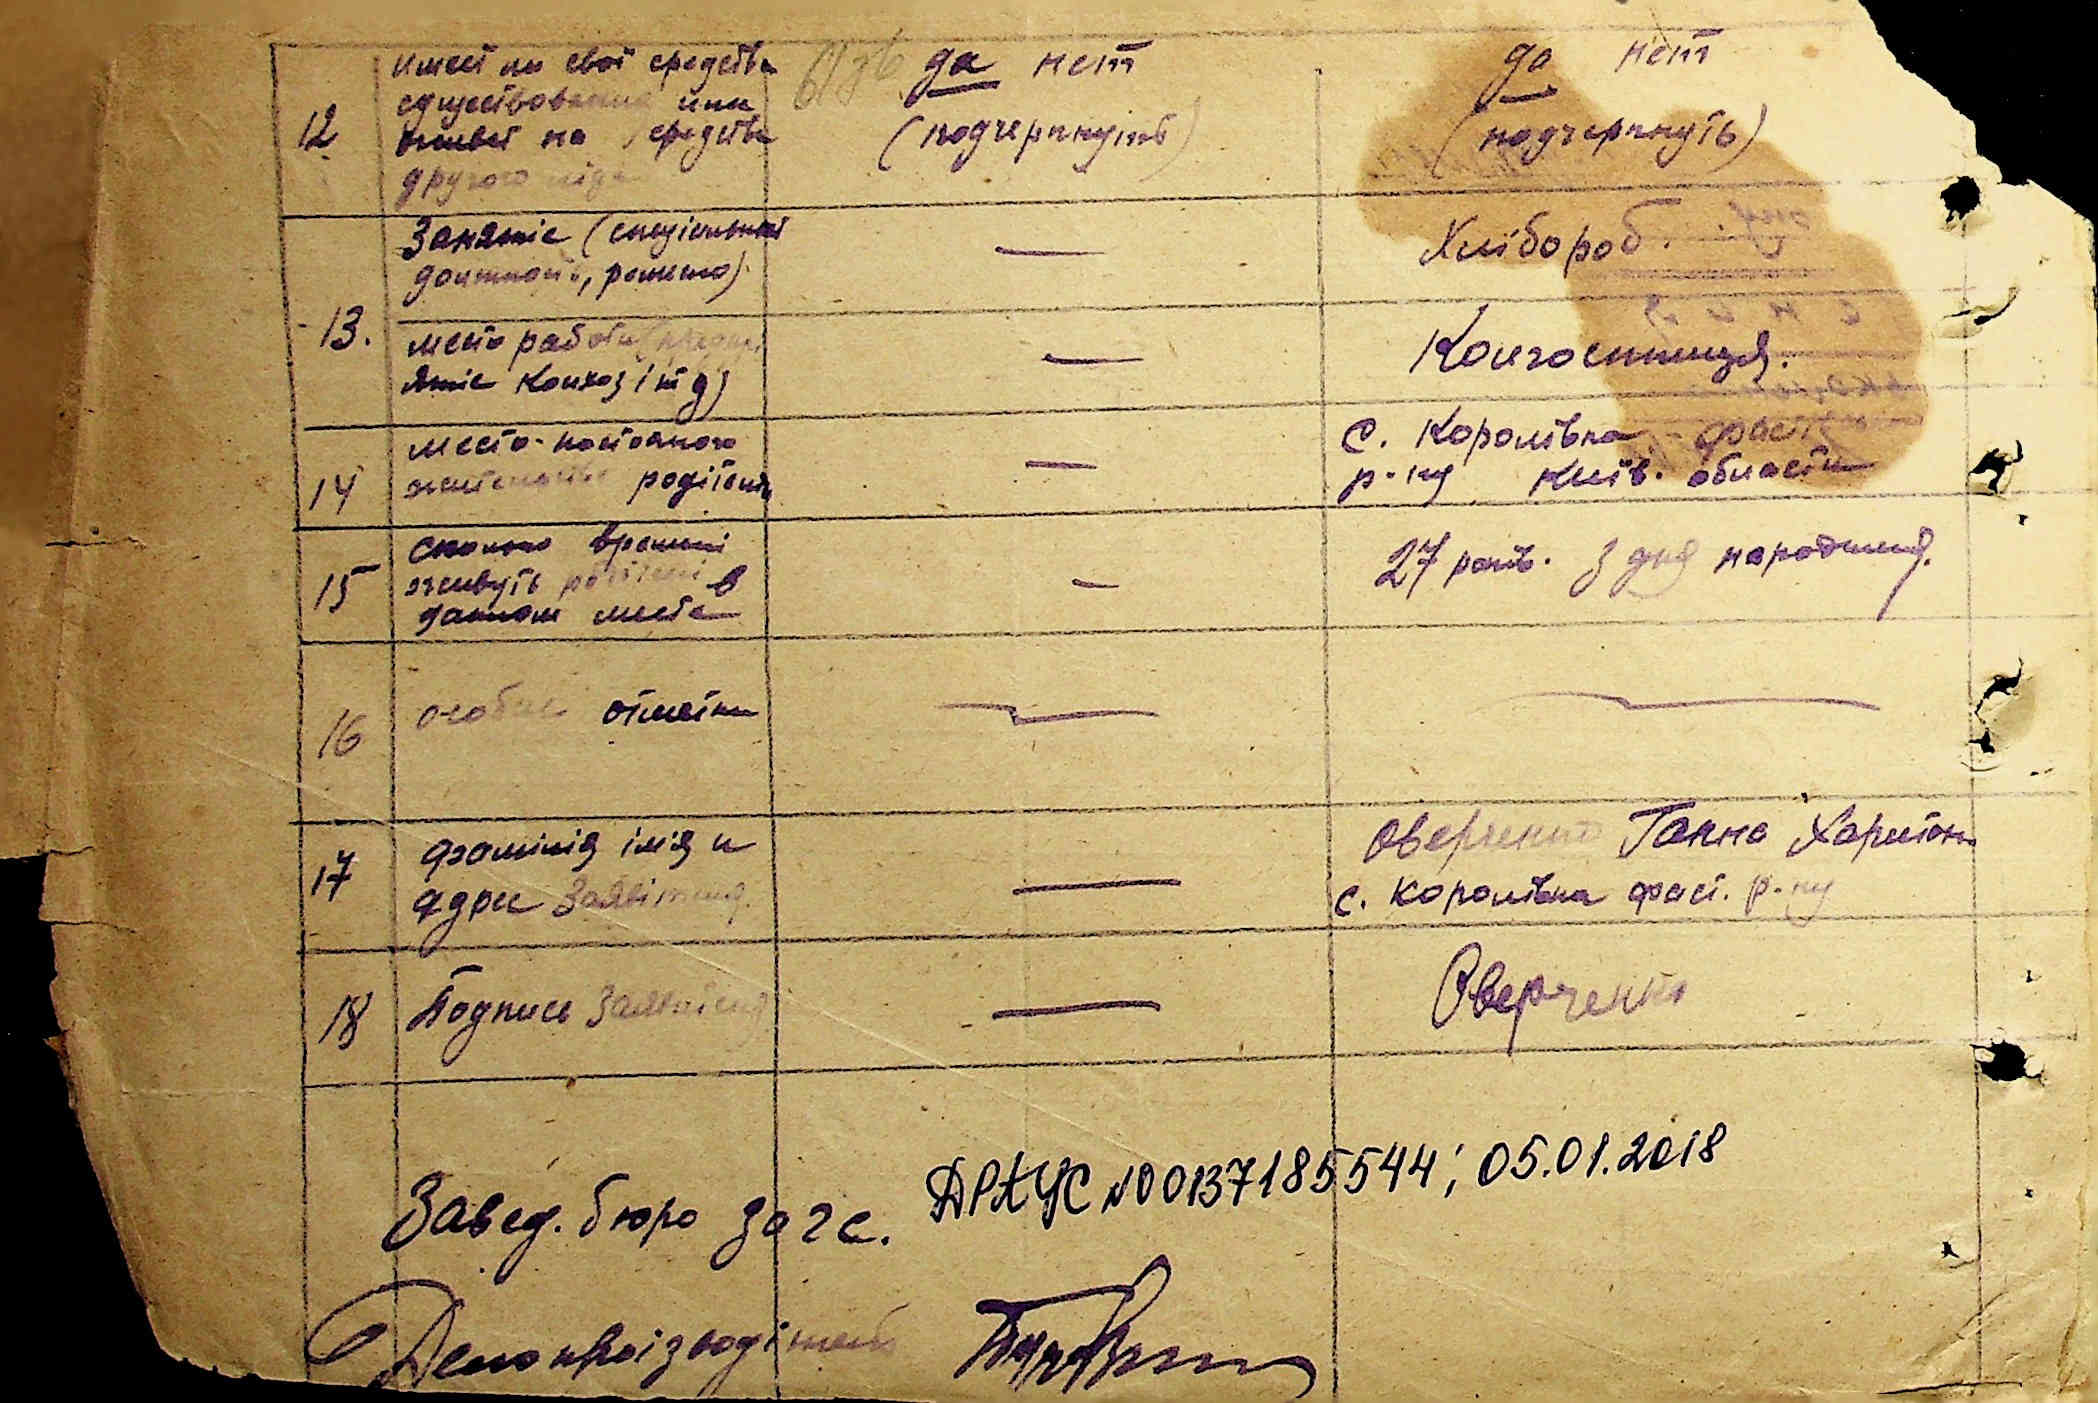 12 имеет ли свої средства да нет да нет
существования или
живет на средства (подчеркнуть) (подчеркнуть)
другого
Занятіє (спеціальность Хлібороб.
должность, ремесло)
13. место работи
Колгоспниця.
ятіє колхоз і т д)
14 место постояного с. Королівка Фаст.
жительства родітелей р-ну Київ. області
15 сколько времені
живуть родітелі в 27 років. З дня народження.
данном месте
16 особиє отметки
17 фамілія імія и Оверченко Ганна Харитон.
адрес Заявітеля с. Королівка Фаст. р-ну
18 Подпись Заявителя Оверченко
Завед. бюро загс. ДРАЦС №00137185544; 05.01.2018
Делопроізводітель